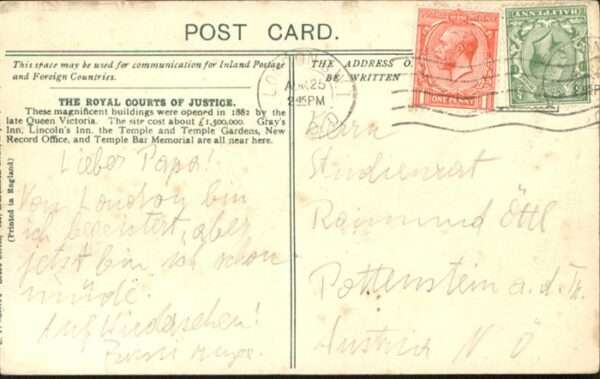 POST CARD.
This space may be used for communication for Inland Postage
and Foreign Countries.
THE ADDRESS O
BE WRITTEN
THE ROYAL COURTS OF JUSTICE.
These magnificent buildings were opened in 1882 by the
late Queen Victoria. The site cost about £1,500,000. Gray's
Inn, Lincoln's Inn, the Temple and Temple Gardens, New
Record Office, and Temple Bar Memorial are all near here.
(Printed in England)
Lieber Papa!
Von London bin
ich begeistert, aber
jetzt bin ich schon
müde.
Auf Wiedersehen!
LONDON
25
2.45PM
ONE PENNY
HALFPENNY
Herrn
Studienrat
Raimund Öttl
Pottenstein a. d. Tr.
Austria N. Ö